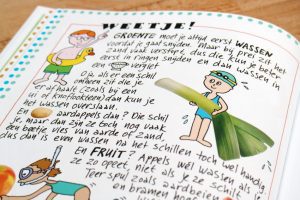 WEETJE!
GROENTE moet je altijd eerst WASSEN
voordat je gaat snijden. Maar bij prei zit het
zand vaak verstopt, dus die kun je beter
eerst in ringen snijden en dan wassen in
Als er een schil
omheen zit die je
eraf haalt (zoals bij een
ui of knoflookteen) dan kun je
het wassen overslaan.
En aardappels dan? Die schil
je, maar dan zijn ze toch nog vaak
een beetje vies van aarde of zand
dus dan is even wassen na het schillen toch wel handig.
En FRUIT? Appels wel wassen als je
ze zo opeet, niet als je ze schilt.
Teer fruit zoals aardbeien
en bramen